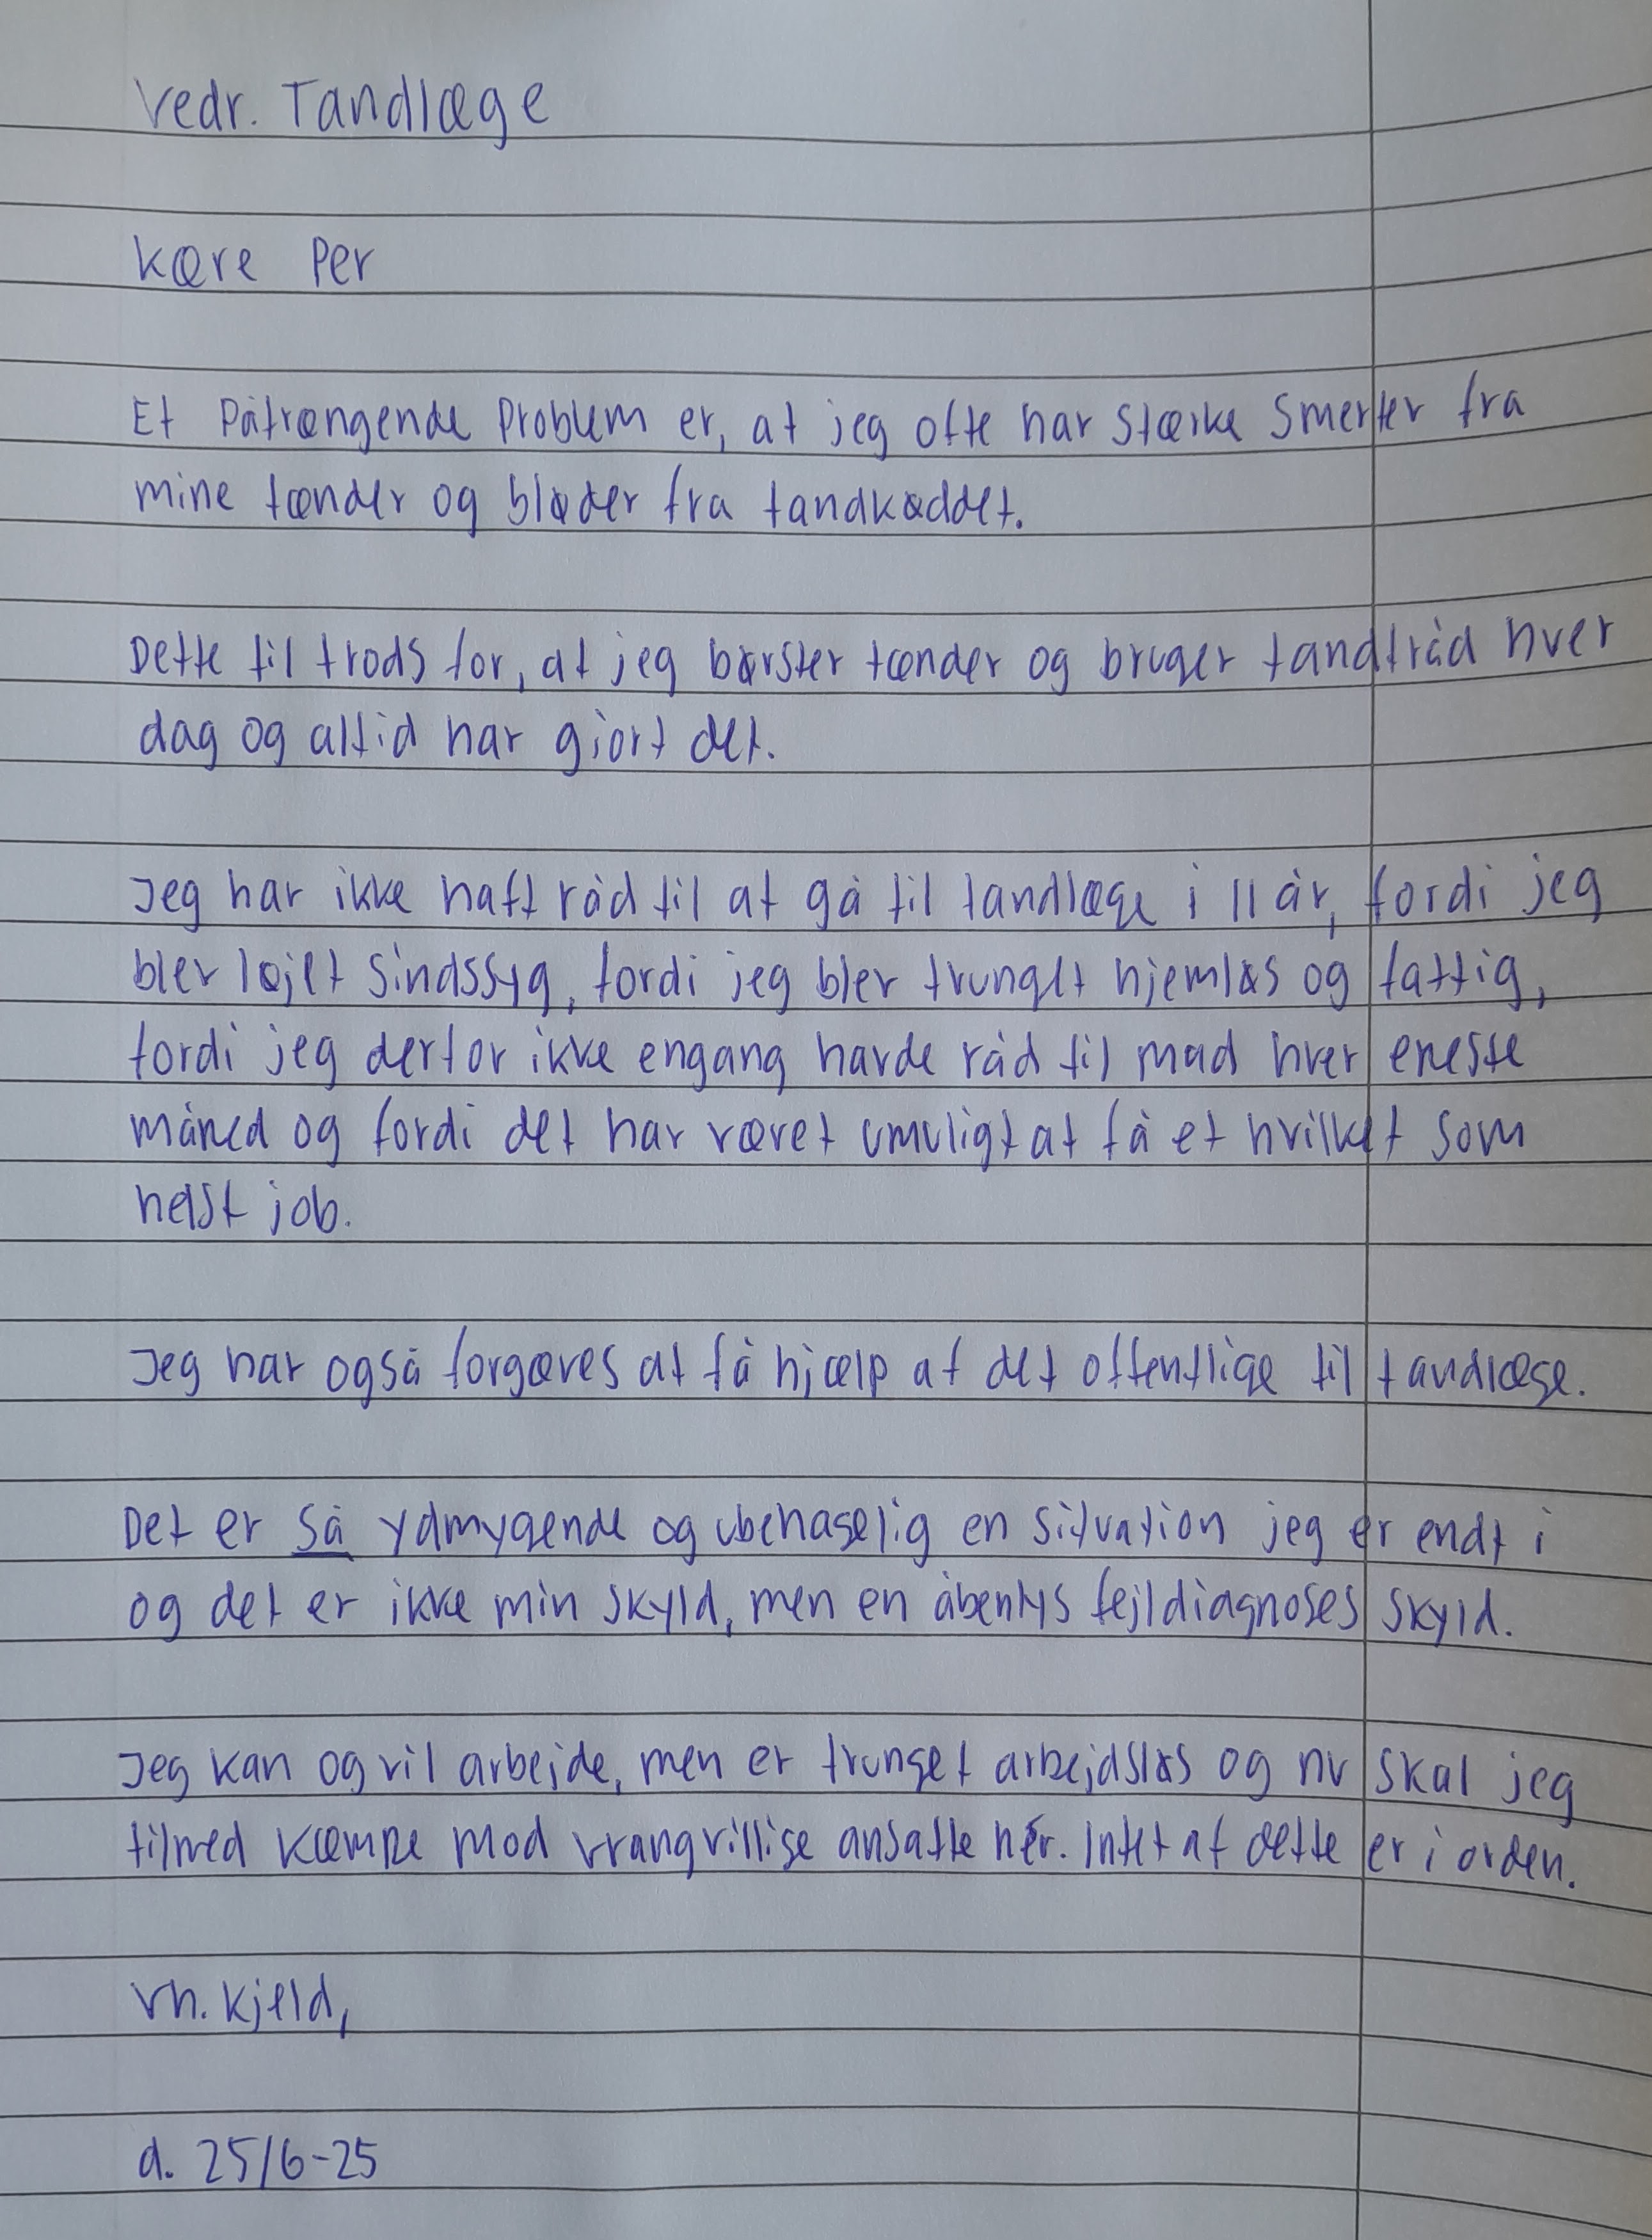 Vedr. Tandlæge
Kære Per
Et påtrængende problem er, at jeg ofte har stærke smerter fra
mine tænder og bløder fra tandkøddet.
Dette til trods for, at jeg børster tænder og bruger tandtråd hver
dag og altid har gjort det.
Jeg har ikke haft råd til at gå til tandlæge i 11 år, fordi jeg
blev løjet sindssyg, fordi jeg blev tvunget hjemløs og fattig,
fordi jeg derfor ikke engang havde råd til mad hver eneste
måned og fordi det har været umuligt at få et hvilket som
helst job.
Jeg har også forgæves at få hjælp af det offentlige til tandlæge.
Det er så ydmygende og ubehagelig en situation jeg er endt i
og det er ikke min skyld, men en åbenlys fejldiagnoses skyld.
Jeg kan og vil arbejde, men er tvunget arbejdsløs og nu skal jeg
tilmed kæmpe mod vrangvillige ansatte hér. Intet af dette er i orden.
Vh. Kjeld,
d. 25/6-25